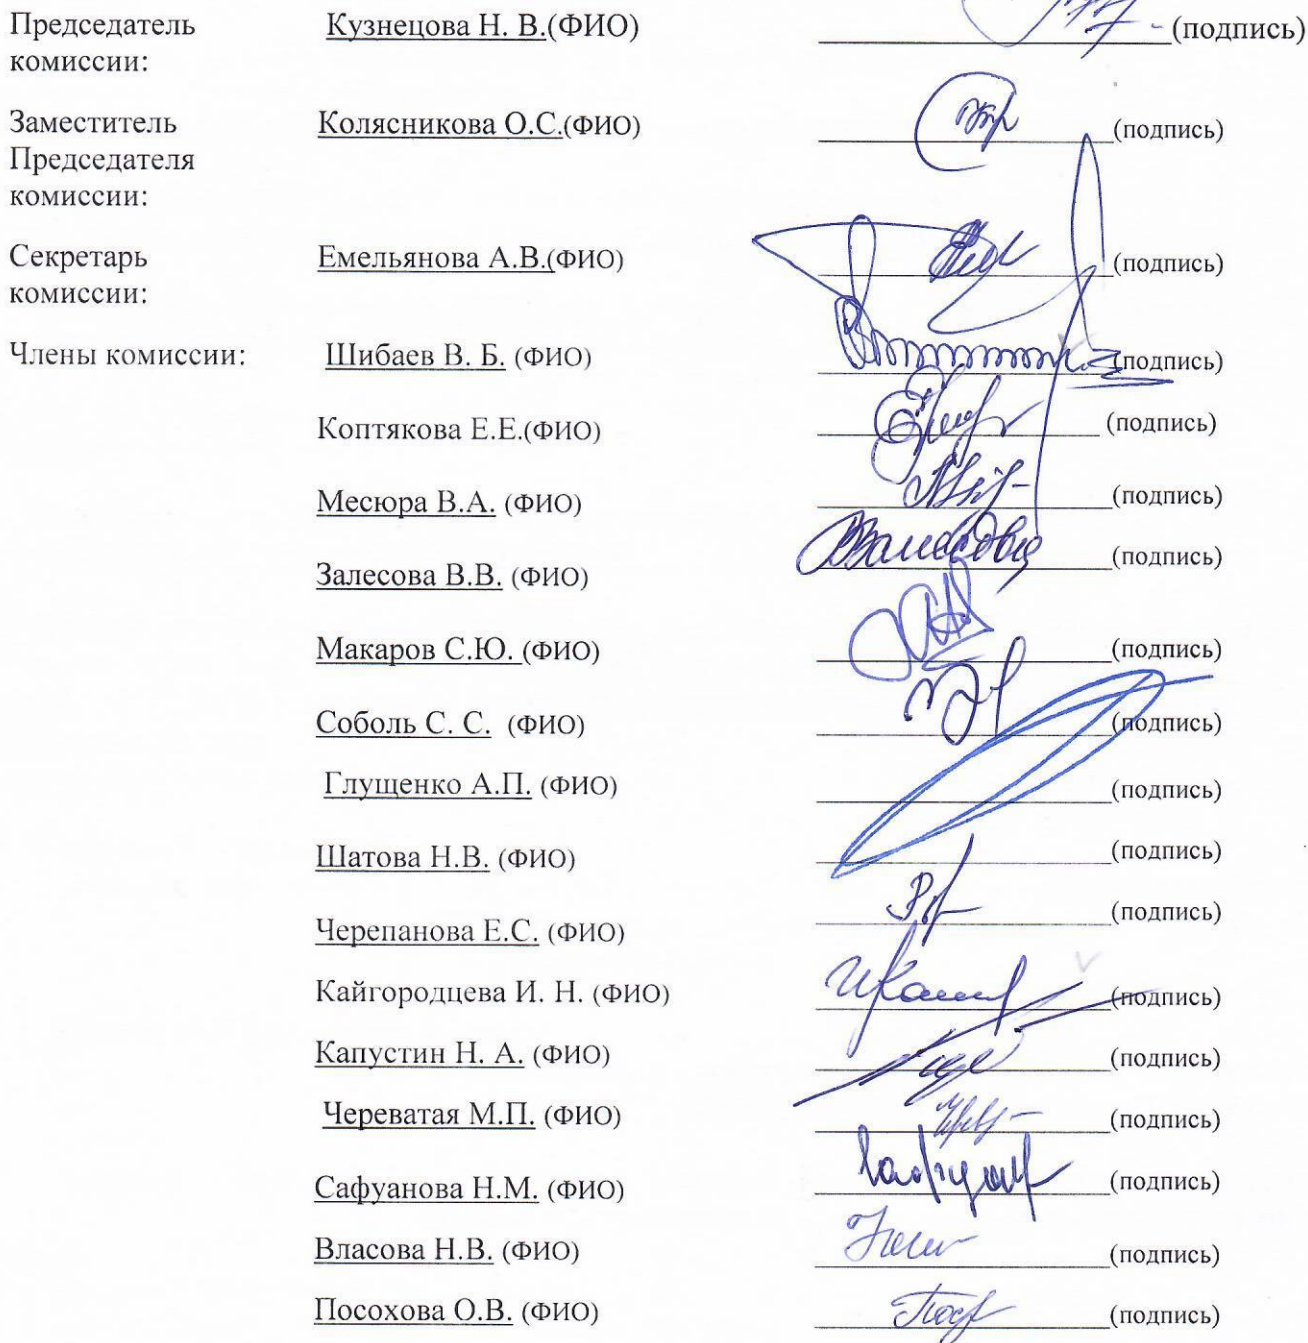 Председатель Кузнецова Н. В.(ФИО) (подпись)
комиссии:
Заместитель Колясникова О.С.(ФИО) (подпись)
Председателя
комиссии:
Секретарь Емельянова А.В.(ФИО) (подпись)
комиссии:
Члены комиссии: Шибаев В. Б. (ФИО) (подпись)
Коптякова Е.Е.(ФИО) (подпись)
Месюра В.А. (ФИО) (подпись)
Залесова В.В. (ФИО) (подпись)
Макаров С.Ю. (ФИО) (подпись)
Соболь С. С. (ФИО) (подпись)
Глущенко А.П. (ФИО) (подпись)
Шатова Н.В. (ФИО) (подпись)
Черепанова Е.С. (ФИО) (подпись)
Кайгородцева И. Н. (ФИО) (подпись)
Капустин Н. А. (ФИО) (подпись)
Череватая М.П. (ФИО) (подпись)
Сафуанова Н.М. (ФИО) (подпись)
Власова Н.В. (ФИО) (подпись)
Посохова О.В. (ФИО) (подпись)